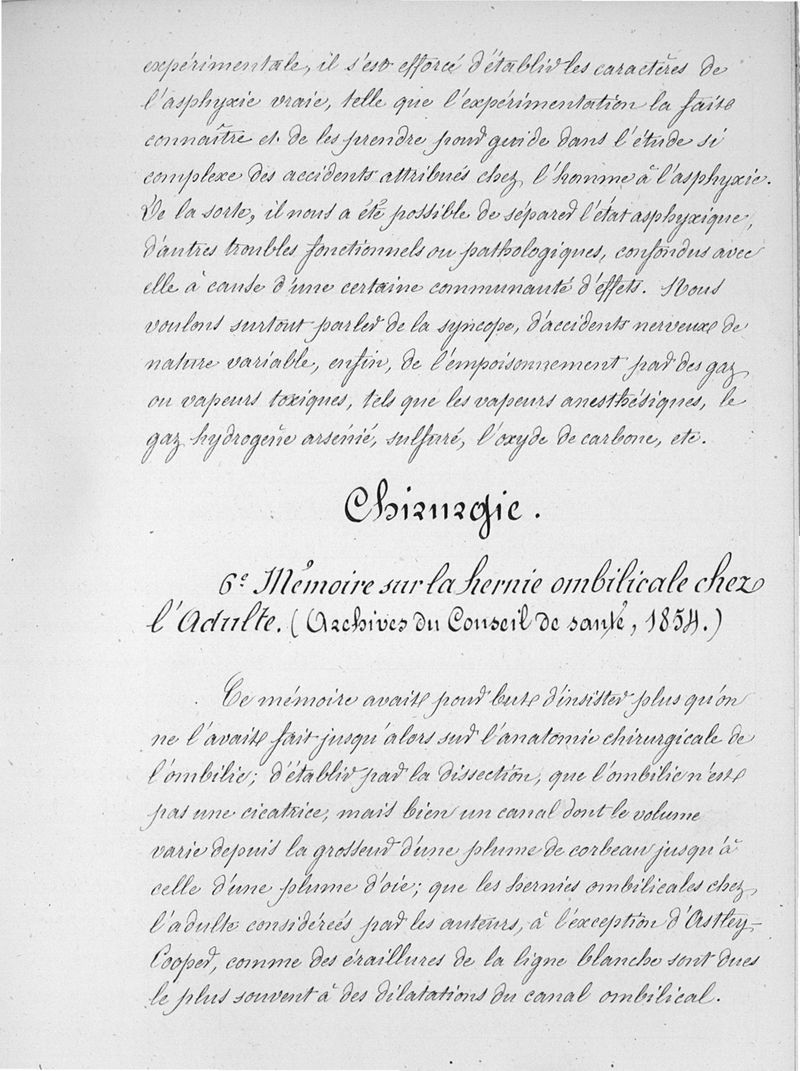 expérimentale, il s'est efforcé d'établir les caractères de
l'asphyxie vraie, telle que l'expérimentation la fait
connaître et de les prendre pour guide dans l'étude si
complexe des accidents attribués chez l'homme à l'asphyxie.
De la sorte, il nous a été possible de séparer l'état asphyxique,
d'autres troubles fonctionnels ou pathologiques, confondus avec
elle à cause d'une certaine communauté d'effets. Nous
voulons surtout parler de la syncope, d'accidents nerveux de
nature variable, enfin, de l'empoisonnement par des gaz
ou vapeurs toxiques, tels que les vapeurs anesthésiques, le
gaz hydrogène arsénié, sulfuré, l'oxyde de carbone, etc.
Chirurgie.
6e Mémoire sur la hernie ombilicale chez
l'Adulte. (Archives du Conseil de santé, 1854.)
Ce mémoire avait pour but d'insister plus qu'on
ne l'avait fait jusqu'alors sur l'anatomie chirurgicale de
l'ombilic; d'établir par la dissection, que l'ombilic n'est
pas une cicatrice, mais bien un canal dont le volume
varie depuis la grosseur d'une plume de corbeau jusqu'à
celle d'une plume d'oie; que les hernies ombilicales chez
l'adulte considérées par les auteurs, à l'exception d'Astley-
Cooper, comme des éraillures de la ligne blanche sont dues
le plus souvent à des dilatations du canal ombilical.